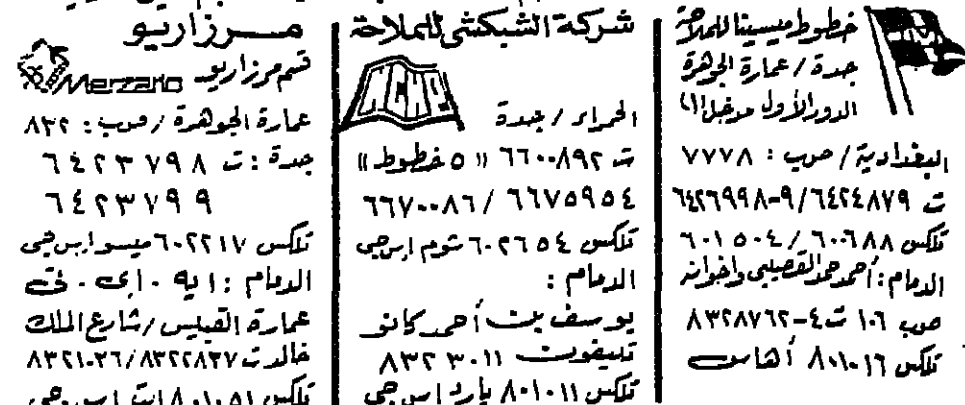 خطوط ميسينا للملاحة
جدة / عمارة الجوهرة
الدور الأول مدخل (١)
البغدادية / ص.ب : ٧٧٧٨
ت ٦٤٢٤٨٧٩/٩-٦٤٢٦٩٩٨
تلكس ٦٠٦٨٨ / ٦٠١٥٠٤
الدمام : أحمد حمد القصيبي واخوانه
ص.ب ١٠٦ ت ٤-٨٣٢٨٧٦٢
تلكس ٨٠١٠١٦
شركة الشبكشي للملاحة
الحمراء / جدة
ت ٦٦٠٠٨٩٢ (( ٥ خطوط ))
٦٦٧٥٩٥٤ / ٦٦٧٠٠٨٦
تلكس ٦٠٢٦٥٤ شوم إس جي
الدمام :
يوسف بن أحمد كانو
تليفون ٨٣٢٣٠١١
تلكس ٨٠١٠١١ يارد إس جي
مرزاريو
قسم مرزاريو Merzario
عمارة الجوهرة / ص.ب : ٨٣٢
جدة : ت ٦٤٢٣٧٩٨
٦٤٢٣٧٩٩
تلكس ٦٠٢٢١٧ ميسو إس جي
الدمام : ايه . اى . تى
عمارة القيبس / شارع الملك
خالد ت ٨٣٢٢٨٣٧ / ٨٣٢١٠٢٦
تلكس ٨٠١٠٥١ إس جي